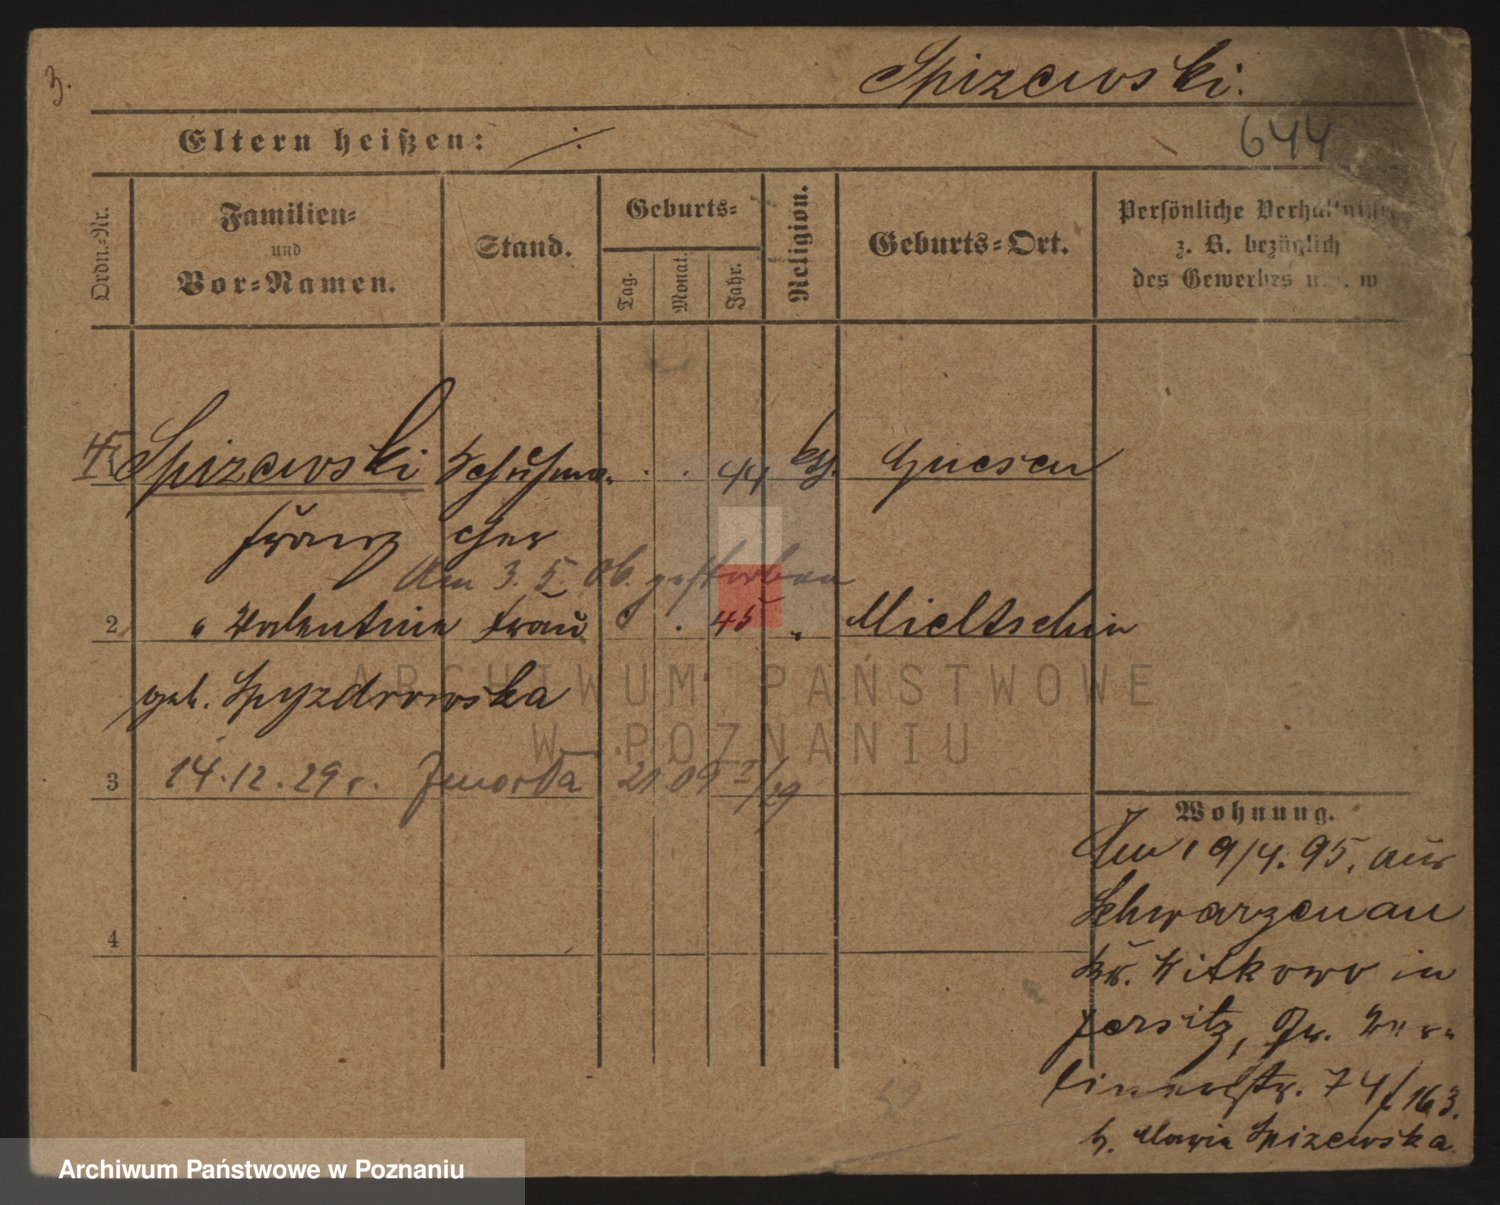 3.
Spizewski.
Eltern heißen: ./.
644
Ordn.=Nr.
Familien=
und
Vor=Namen.
Stand.
Geburts=
Tag.
Monat.
Jahr.
Religion.
Geburts=Ort.
Persönliche Verhältnisse
z. B. bezüglich
des Gewerbes u. s. w
Spizewski Schuhma- . . 44 kth. Gnesen
Franz cher
Am 3. 5. 06. gestorben
2 " Valentine Frau . 45 " Mieltschin
geb. Spyzdrowska
3 14.12.29 r. Zmarła
4
Wohnung.
Am 19/4. 95. aus
Schwarzenau
Kr. Witkowo in
Jersitz, Gr.
linerstr. 74 163.
b. Maria Spizewska
ARCHIWUM PAŃSTWOWE
W POZNANIU
Archiwum Państwowe w Poznaniu